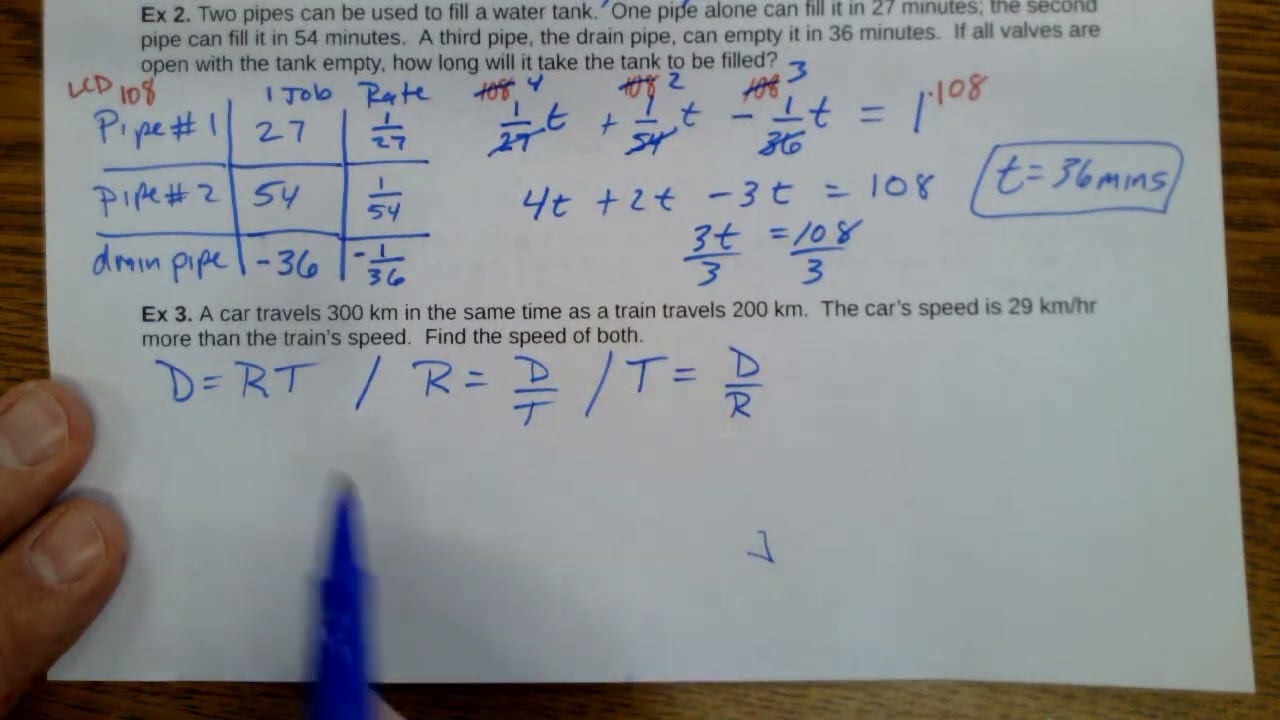 Ex 2. Two pipes can be used to fill a water tank. One pipe alone can fill it in 27 minutes; the second
pipe can fill it in 54 minutes. A third pipe, the drain pipe, can empty it in 36 minutes. If all valves are
open with the tank empty, how long will it take the tank to be filled?
LCD 108
1 Job Rate 108 4 108 2 108 3
Pipe #1 27 1/27 1/27 t + 1/54 t - 1/36 t = 1 ·108
Pipe #2 54 1/54 4t + 2t - 3t = 108 t = 36 mins
3t/3 = 108/3
drain pipe -36 -1/36
Ex 3. A car travels 300 km in the same time as a train travels 200 km. The car's speed is 29 km/hr
more than the train's speed. Find the speed of both.
D = RT / R = D/T / T = D/R